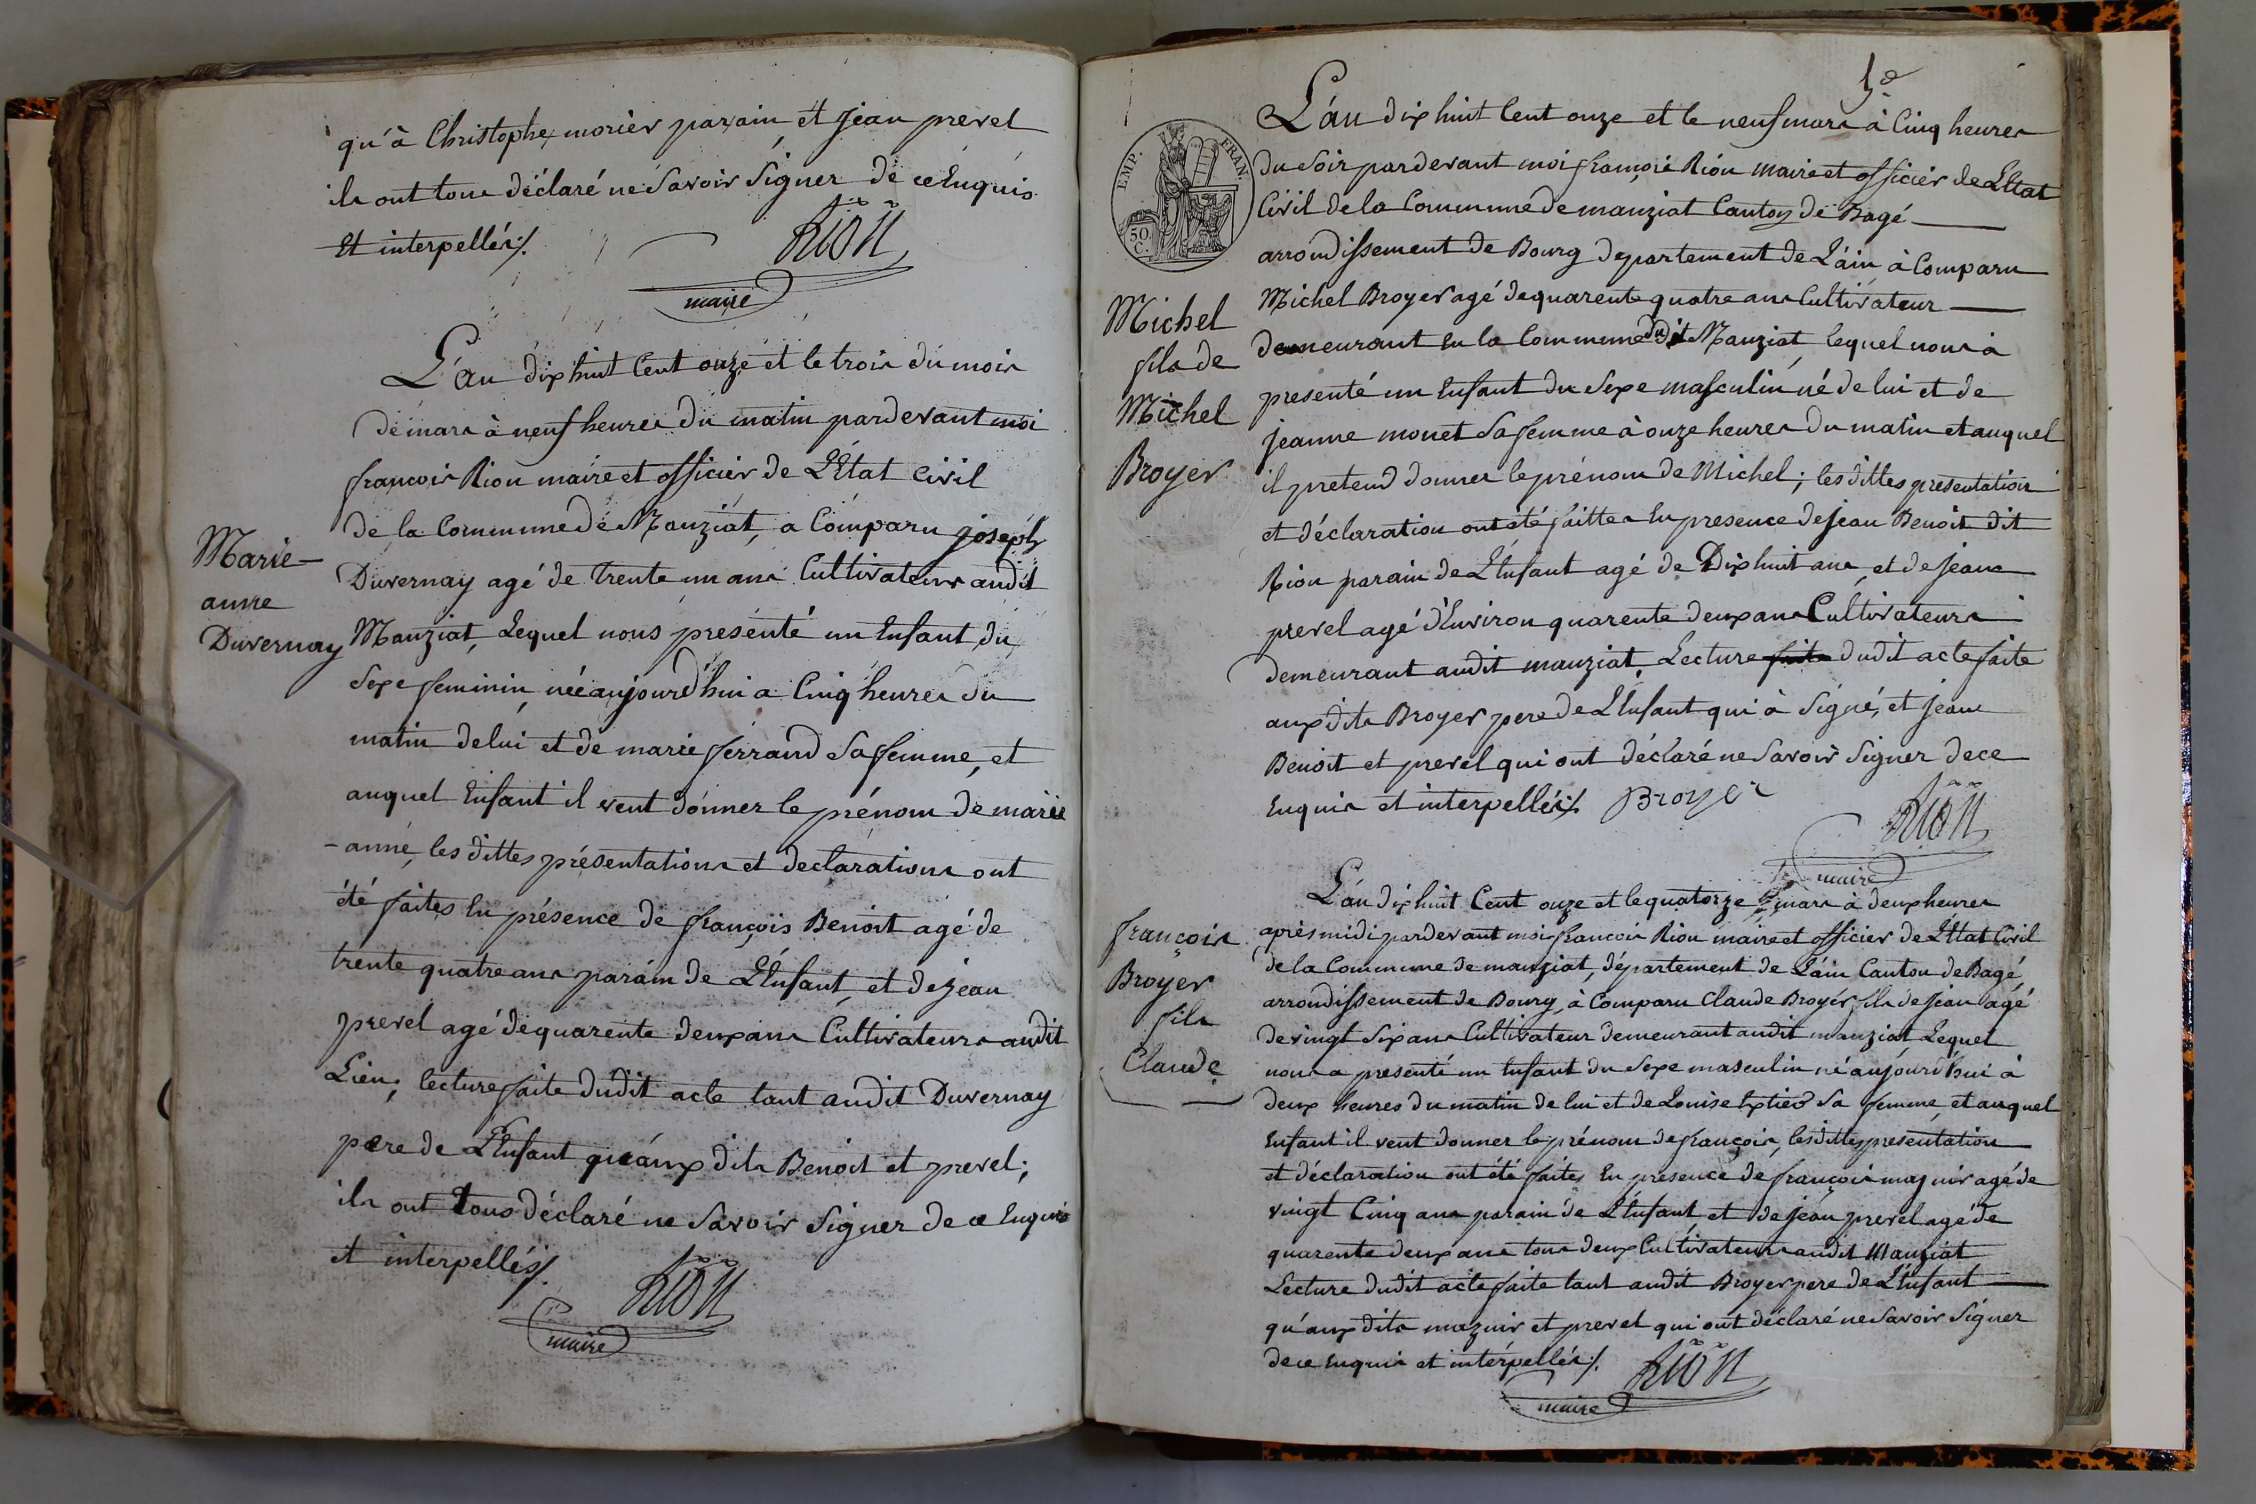 qu'à Christophe morier parain et jean prevel
ils ont tous déclaré ne savoir signer de ce Enquis
Et interpellés /.
Rion
maire
L'an dix huit Cent onze et le trois du mois
de mars à neuf heures du matin pardevant moi
françois Rion maire et officier de L'Etat Civil
de la Commune de Manziat, a Comparu joseph
Marie
anne
Duvernay
Duvernay agé de trente un ans Cultivateur audit
Manziat, Lequel nous présenté un Enfant du
sexe feminin, née aujourd'hui a Cinq heures du
matin de lui et de marie ferrand sa femme, et
auquel Enfant il veut donner le prénom de marie
-anne, les dittes présentations et declarations ont
été faites En présence de françois Benoit agé de
trente quatre ans parain de L'Enfant, et de jean
prevel agé de quarente deux ans Cultivateurs audit
Lieu; lecture faite dudit acte tant audit Duvernay
pere de L'Enfant qu'aux dits Benoit et prevel;
ils ont tous déclaré ne savoir signer de ce Enquis
et interpellés /.
Rion
maire
EMP. FRAN.
50 C.
L'an dix huit Cent onze et le neuf mars à Cinq heures
du soir pardevant moi françois Rion maire et officier de L'Etat
Civil de la Commune de manziat Canton de Bagé
arrondissement de Bourg departement de L'ain à Comparu
Michel
fils de
Michel
Broyer
Michel Broyer agé de quarente quatre ans Cultivateur
demeurant En la Commune dudit Manziat, lequel nous à
presenté un Enfant du sexe masculin né de lui et de
jeanne monet sa femme à onze heures du matin et auquel
il pretend donner le prénom de Michel; les dittes presentation
et déclaration ont été faittes En presence de jean Benoit dit
Rion parain de L'Enfant agé de Dix huit ans, et de jean
prevel agé d'Environ quarente deux ans Cultivateurs
demeurant audit manziat, Lecture faite dudit acte faite
aux dits Broyer pere de L'Enfant qui à signé, et jean
Benoit et prevel qui ont déclaré ne savoir signer de ce
Enquis et interpellés /. Broyer
Rion
maire
françois
Broyer
fils
Claude
L'an dix huit Cent onze et le quatorze mars à deux heures
après midi pardevant moi françois Rion maire et officier de L'Etat Civil
de la Commune de manziat, département de L'ain Canton de Bagé
arrondissement de Bourg, à Comparu Claude Broyer fils de jean agé
de vingt six ans Cultivateur demeurant audit manziat, Lequel
nous a presenté un Enfant du sexe masculin né aujourd'hui à
deux heures du matin de lui et de Louise sa femme, et auquel
Enfant il veut donner le prénom de françois, les dittes presentation
et déclaration ont été faites En presence de françois maznir agé de
vingt Cinq ans parain de L'Enfant, et de jean prevel agé de
quarente deux ans tous deux Cultivateurs audit Manziat
Lecture dudit acte faite tant audit Broyer pere de L'Enfant
qu'aux dits maznir et prevel qui ont déclaré ne savoir signer
de ce Enquis et interpellés /.
Rion
maire